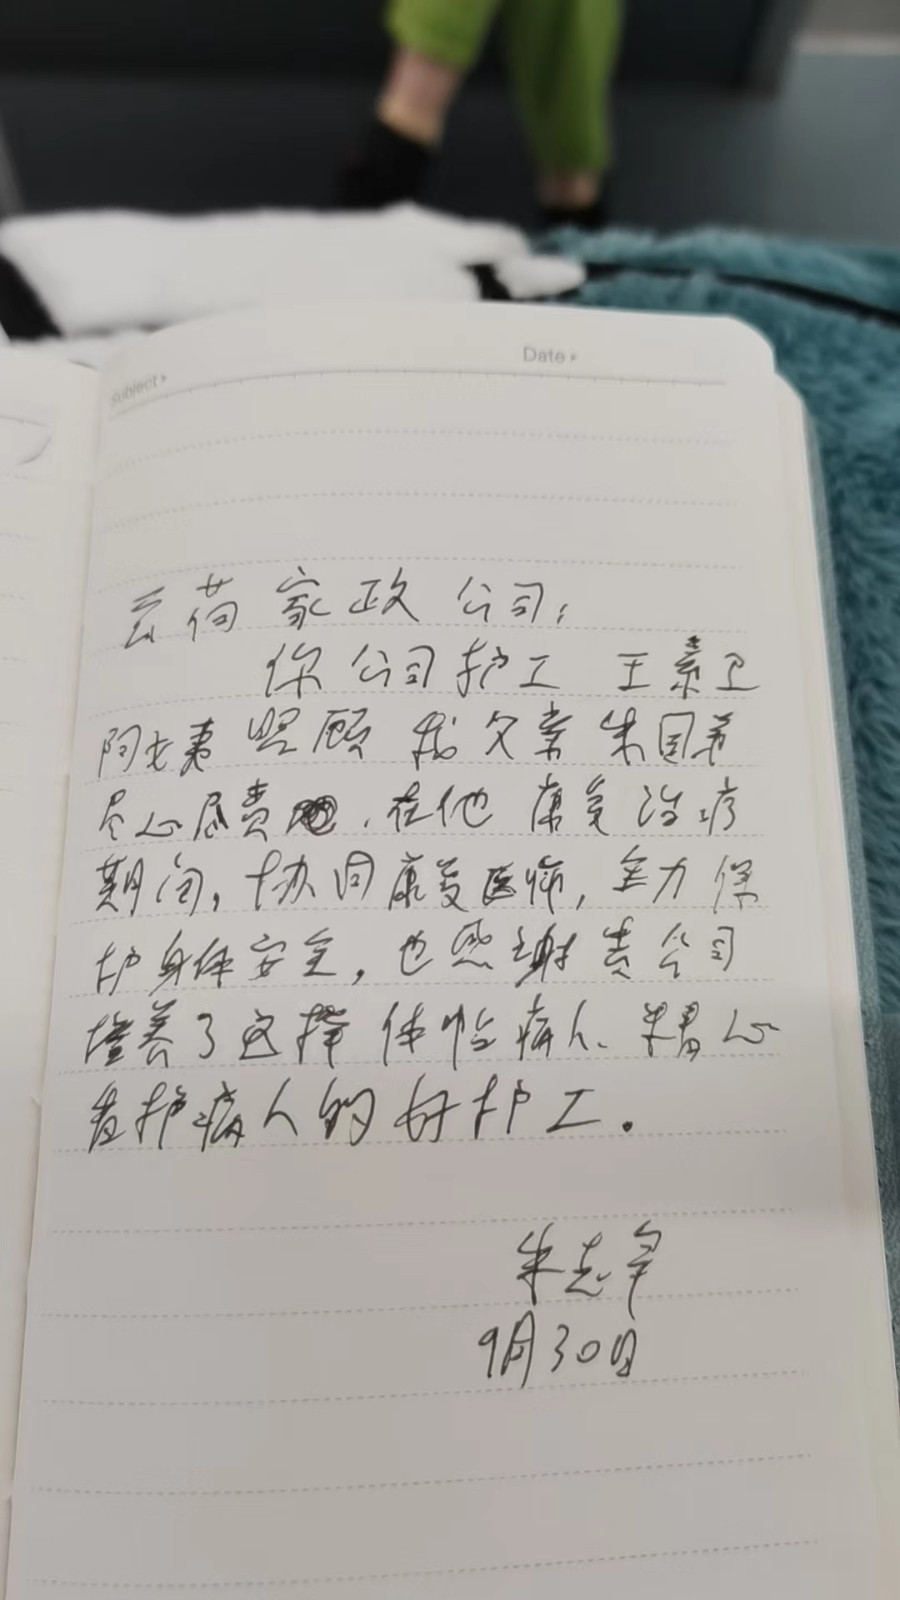 Subject
Date
云荷家政公司:
你公司护工 王素卫
阿姨 照顾 我父亲 朱国弟
尽心尽责,在他 康复治疗
期间,协同康复医师,全力保
护身体安全,也感谢贵公司
培养了这样 体恤病人、精心
看护病人的好护工。
朱志
9月30日